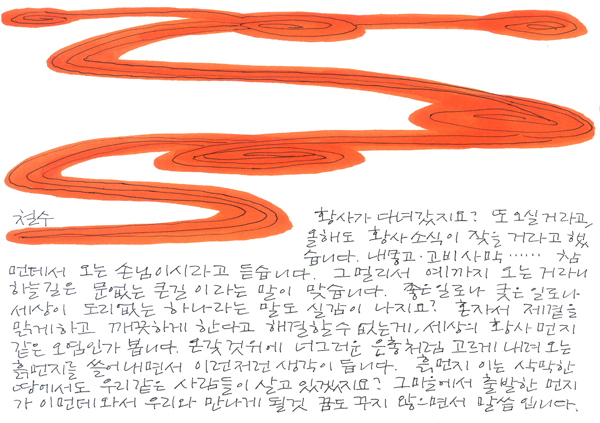 황사가 다녀갔지요? 또 오실거라고,
올해도 황사소식이 잦을 거라고 했
습니다. 내몽고·고비사막…… 참
먼데서 오는 손님이시라고 듣습니다. 그 멀리서 예까지 오는거라니
하늘길은 문없는 큰길 이라는 말이 맞습니다. 좋은일로나 궂은일로나
세상이 도리없는 하나라는 말도 실감이 나지요? 혼자서 제집을
맑게하고 깨끗하게 한다고 해결할수 없는게, 세상의 황사 먼지
같은 오염인가 봅니다. 온갖것위에 너그러운 은총처럼 고르게 내려오는
흙먼지를 쓸어내면서 이런저런 생각이 듭니다. 흙먼지 이는 삭막한
땅에서도 우리같은 사람들이 살고 있겠지요? 그마을에서 출발한 먼지
가 이먼데와서 우리와 만나게 될것 꿈도 꾸지 않으면서 말씀입니다.
철수